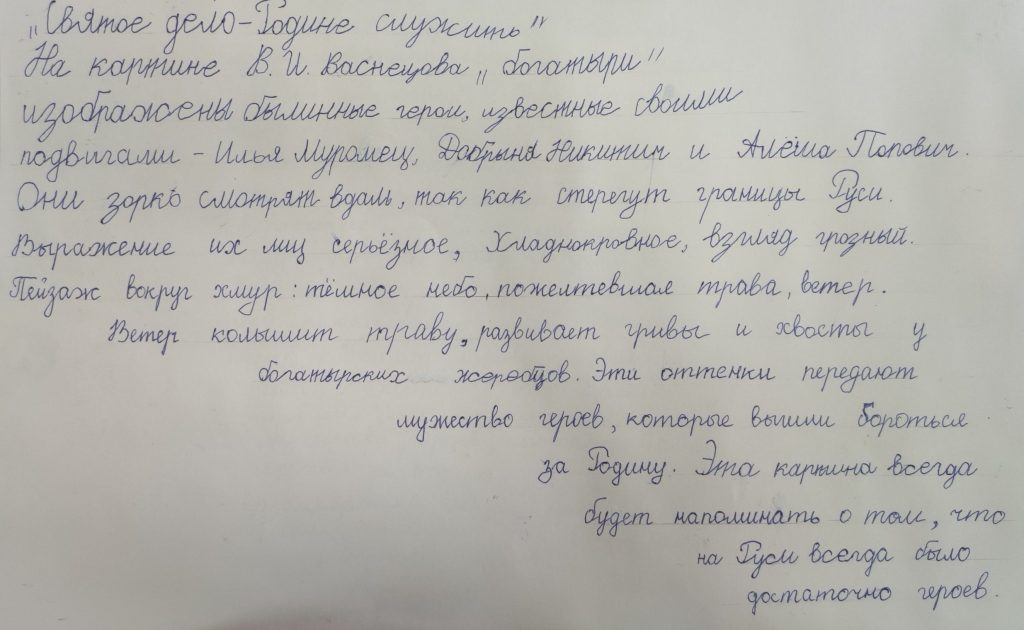 „Святое дело-Родине служить"
На картине В. И. Васнецова „богатыри"
изображены былинные герои, известные своими
подвигами - Илья Муромец, Добрыня Никитич и Алёша Попович.
Они зорко смотрят вдаль, так как стерегут границы Руси.
Выражение их лиц серьёзное, Хладнокровное, взгляд грозный.
Пейзаж вокруг хмур: тёмное небо, пожелтевшая трава, ветер.
Ветер колышит траву, развивает гривы и хвосты у
богатырских жеребцов. Эти оттенки передают
мужество героев, которые вышли бороться
за Родину. Эта картина всегда
будет напоминать о том, что
на Руси всегда было
достаточно героев.